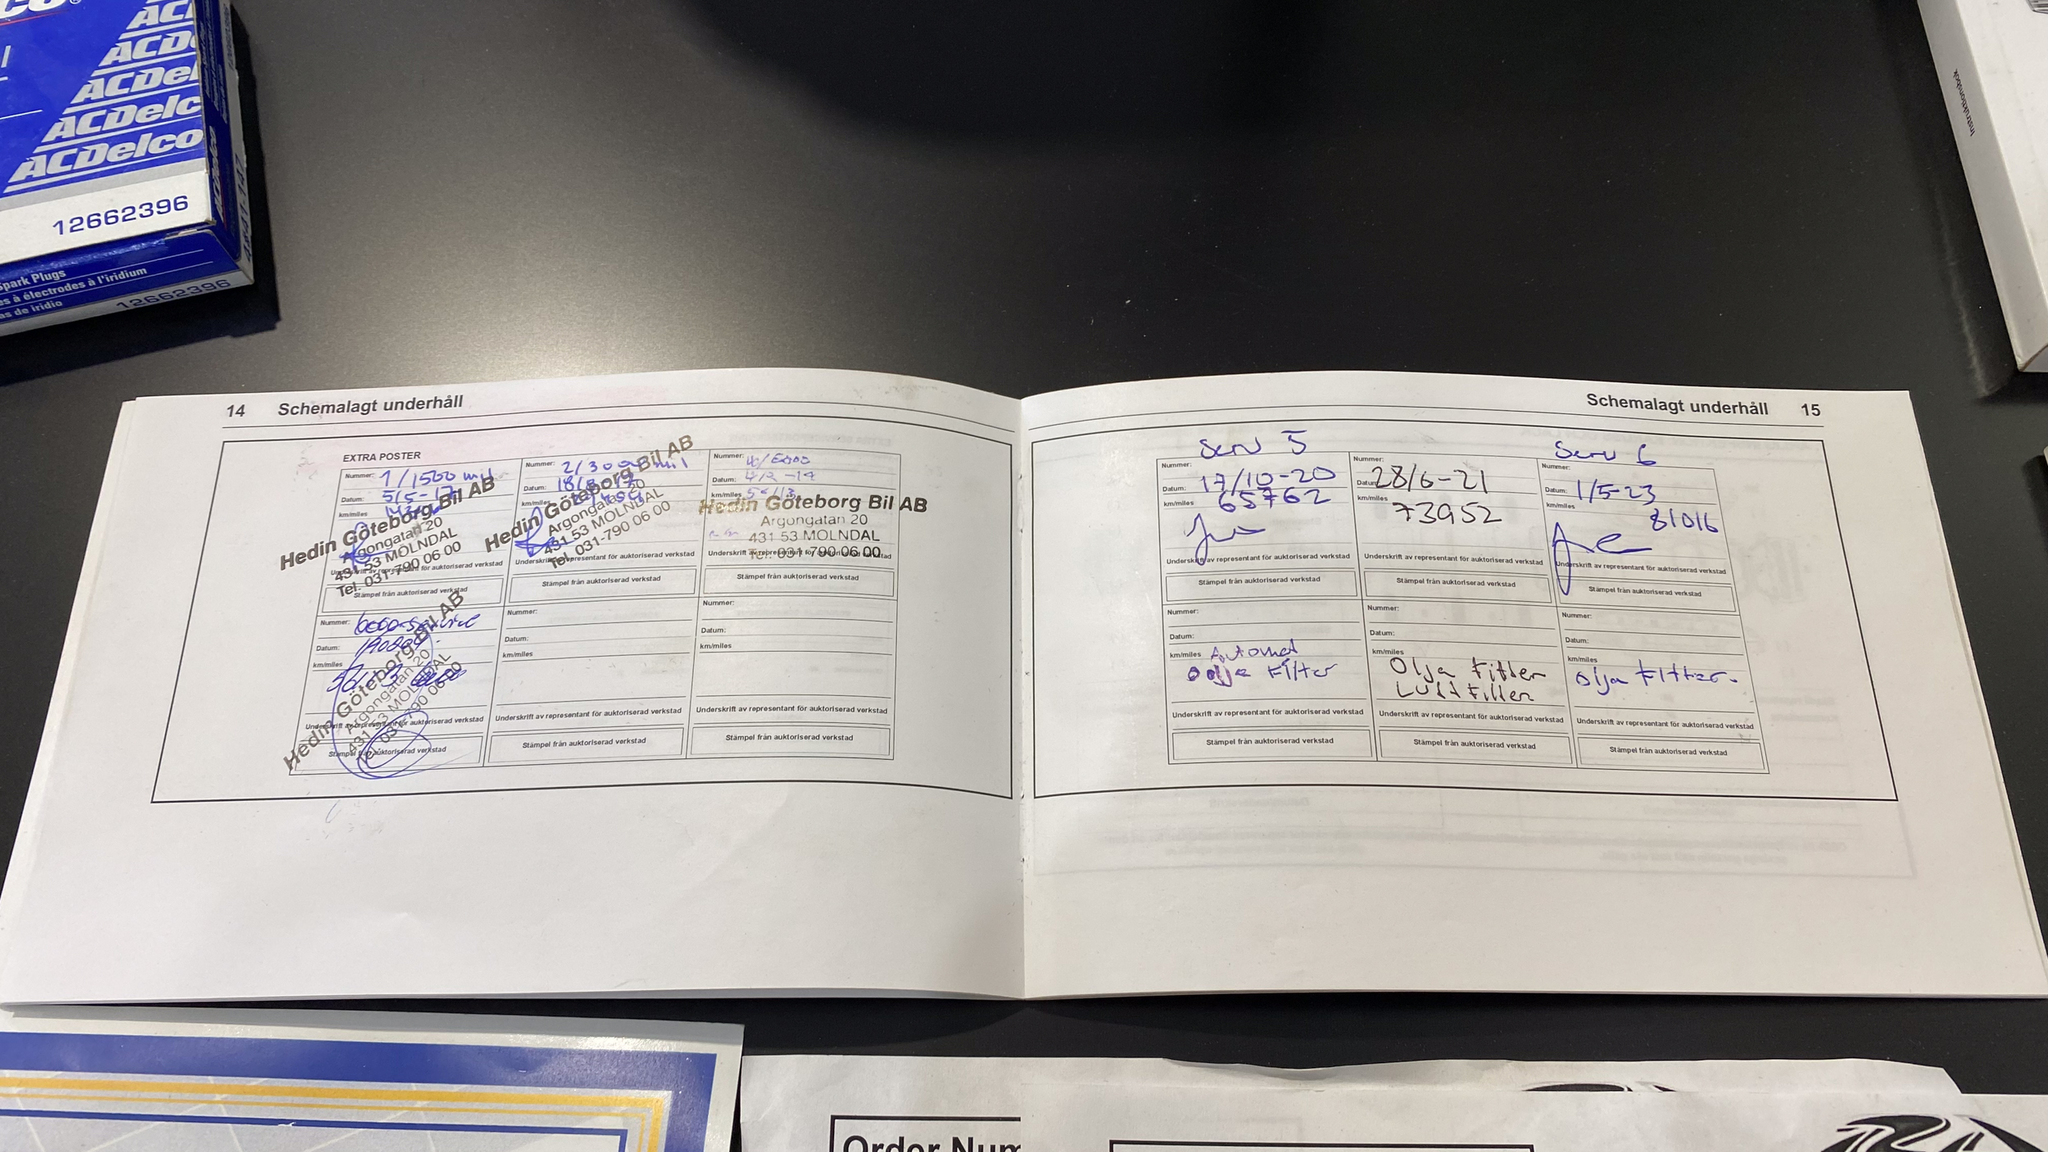 ACDelco
ACDelco
ACDelco
12662396
Spark Plugs
à électrodes à l'iridium
de iridio
12662396
Instruktionsbok
14 Schemalagt underhåll
EXTRA POSTER
Nummer: 1/1500 mil
Datum: 5/5-17
km/miles
Hedin Göteborg Bil AB
Argongatan 20
431 53 MÖLNDAL
Tel. 031-790 06 00
Underskrift av representant för auktoriserad verkstad
Stämpel från auktoriserad verkstad
Nummer: 2/3000 mil
Datum:
km/miles
Hedin Göteborg Bil AB
Argongatan 20
431 53 MÖLNDAL
Tel. 031-790 06 00
Underskrift av representant för auktoriserad verkstad
Stämpel från auktoriserad verkstad
Nummer:
Datum:
km/miles
Hedin Göteborg Bil AB
Argongatan 20
431 53 MÖLNDAL
Tel. 031-790 06 00
Underskrift av representant för auktoriserad verkstad
Stämpel från auktoriserad verkstad
Nummer:
Datum:
km/miles
Hedin Göteborg Bil AB
Argongatan 20
431 53 MÖLNDAL
Underskrift av representant för auktoriserad verkstad
Stämpel från auktoriserad verkstad
Nummer:
Datum:
km/miles
Underskrift av representant för auktoriserad verkstad
Stämpel från auktoriserad verkstad
Nummer:
Datum:
km/miles
Underskrift av representant för auktoriserad verkstad
Stämpel från auktoriserad verkstad
Schemalagt underhåll 15
Serv 5
Nummer:
Datum: 17/10-20
km/miles 65762
Underskrift av representant för auktoriserad verkstad
Stämpel från auktoriserad verkstad
Nummer:
Datum: 28/6-21
km/miles 73952
Underskrift av representant för auktoriserad verkstad
Stämpel från auktoriserad verkstad
Serv 6
Nummer:
Datum: 1/5-23
km/miles 81016
Underskrift av representant för auktoriserad verkstad
Stämpel från auktoriserad verkstad
Nummer:
Datum:
km/miles Automat
Olja Filter
Underskrift av representant för auktoriserad verkstad
Stämpel från auktoriserad verkstad
Nummer:
Datum:
km/miles
Olja Filter
Luft Filter
Underskrift av representant för auktoriserad verkstad
Stämpel från auktoriserad verkstad
Nummer:
Datum:
km/miles
Olja Filter.
Underskrift av representant för auktoriserad verkstad
Stämpel från auktoriserad verkstad
Order Num